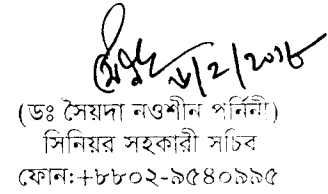 ৬/2/2০১৮
(ডঃ সৈয়দা নওশীন পর্নিনী)
সিনিয়র সহকারী সচিব
ফোন:+৮৮০২-৯৫৪০৯৯৫